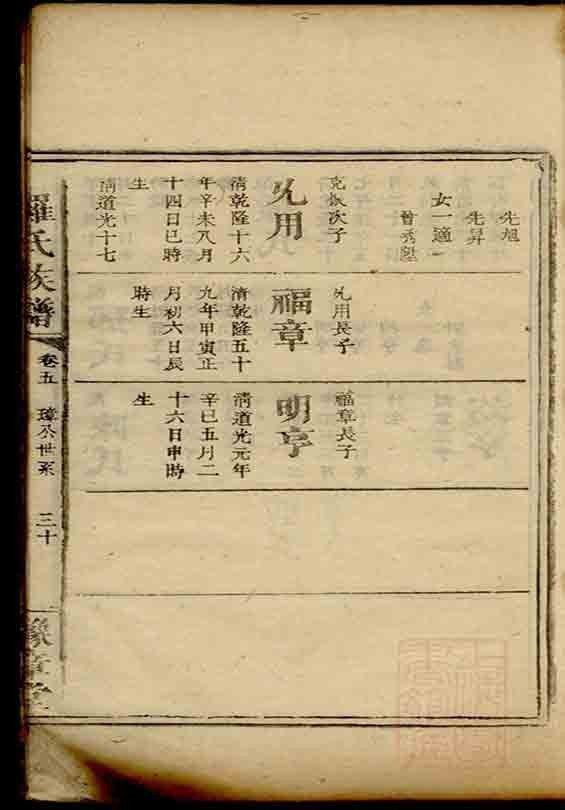 先旭
先昇
女一適
曾秀
次子
允用
清乾隆十六
年辛未八月
十四日巳時
生
清道光十七
允用長子
福章
清乾隆五十
九年甲寅正
月初六日辰
時生
福章長子
明亨
清道光元年
辛巳五月二
十六日申時
生
羅氏族譜
卷五
璋公世系
三十
豫章堂